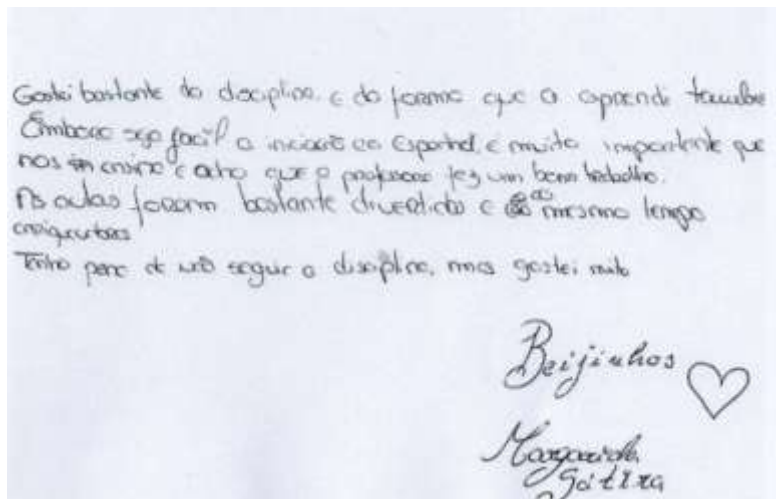 Gostei bastante da disciplina e da forma que a aprendi também
Embora seja facil a iniciação ao Espanhol, é muito importante que
nos ensine e acho que a professora fez um bom trabalho.
As aulas foram bastante divertidas e ao mesmo tempo
enriquecedoras
Tenho pena de não seguir a disciplina, mas gostei muito
Beijinhos
Margarida